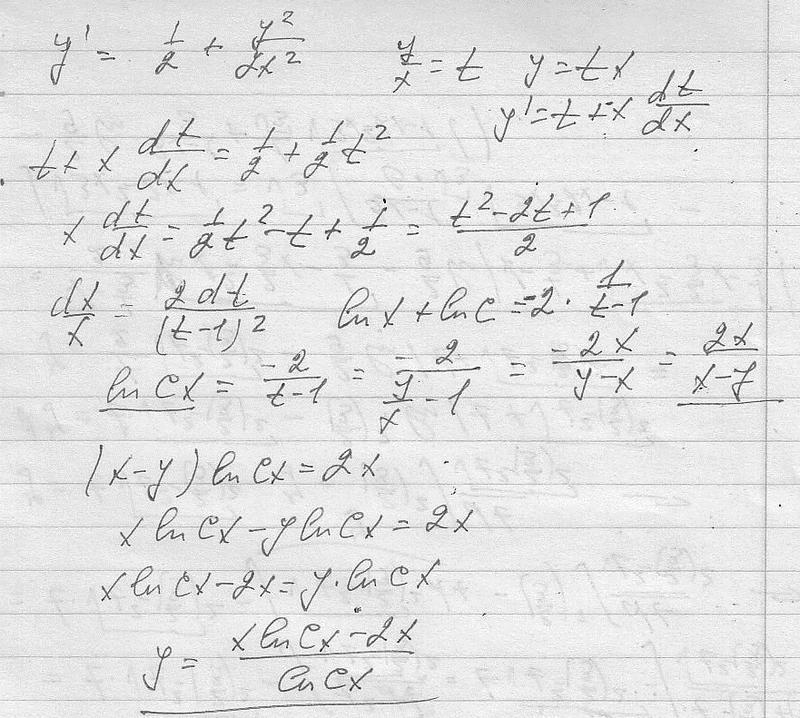 y' = 1/2 + y²/2x²   y/x = t   y = tx
y' = t + x dt/dx
t + x dt/dx = 1/2 + 1/2 t²
x dt/dx = 1/2 t² - t + 1/2 = (t² - 2t + 1)/2
dx/x = 2dt/(t-1)²   ln x + ln c = -2 · 1/(t-1)
ln cx = -2/(t-1) = -2/(y/x - 1) = -2x/(y-x) = 2x/(x-y)
(x-y) ln cx = 2x
x ln cx - y ln cx = 2x
x ln cx - 2x = y · ln cx
y = (x ln cx - 2x)/ln cx